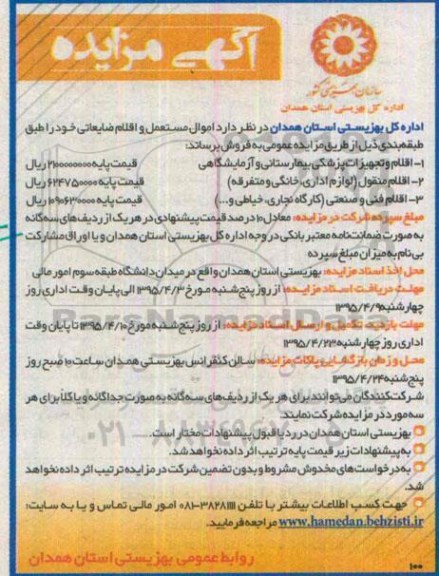 آگهی مزایده
سازمان بهزیستی کشور
اداره کل بهزیستی استان همدان
اداره کل بهزیستی استان همدان در نظر دارد اموال مستعمل و اقلام ضایعاتی خود را طبق
طبقه‌بندی ذیل از طریق مزایده عمومی به فروش برساند:
۱- اقلام و تجهیزات پزشکی، بیمارستانی و آزمایشگاهی قیمت پایه ۲۱۰۰۰۰۰۰۰ ریال
۲- اقلام منقول (لوازم اداری، خانگی و متفرقه) قیمت پایه ۶۲۴۷۵۰۰۰۰ ریال
۳- اقلام فنی و صنعتی (کارگاه نجاری، خیاطی و...) قیمت پایه ۱۰۹۰۶۳۰۰۰۰ ریال
مبلغ سپرده شرکت در مزایده: معادل ۱۰ درصد قیمت پیشنهادی در هر یک از ردیف‌های سه‌گانه
به صورت ضمانتنامه معتبر بانکی در وجه اداره کل بهزیستی استان همدان و یا اوراق مشارکت
بی‌نام به میزان مبلغ سپرده
محل اخذ اسناد مزایده: بهزیستی استان همدان واقع در میدان دانشگاه طبقه سوم امور مالی
مهلت دریافت اسناد مزایده: از روز پنج‌شنبه مورخ ۱۳۹۵/۴/۳ الی پایان وقت اداری روز
چهارشنبه ۱۳۹۵/۴/۹
مهلت بازدید، تکمیل و ارسال اسناد مزایده: از روز پنج‌شنبه مورخ ۱۳۹۵/۴/۱۰ تا پایان وقت
اداری روز چهارشنبه ۱۳۹۵/۴/۲۳
محل و زمان بازگشایی پاکات مزایده: سالن کنفرانس بهزیستی همدان ساعت ۱۰ صبح روز
پنج‌شنبه ۱۳۹۵/۴/۲۴
شرکت‌کنندگان می‌توانند برای هر یک از ردیف‌های سه‌گانه به صورت جداگانه و یا کلاً برای هر
سه مورد در مزایده شرکت نمایند.
بهزیستی استان همدان در رد یا قبول پیشنهادات مختار است.
به پیشنهادات زیر قیمت پایه ترتیب اثر داده نخواهد شد.
به درخواست‌های مخدوش مشروط و بدون تضمین شرکت در مزایده ترتیب اثر داده نخواهد
شد.
جهت کسب اطلاعات بیشتر با تلفن ۳۸۲۸۱۱۱۱-۰۸۱ امور مالی تماس و یا به سایت:
www.hamedan.behzisti.ir مراجعه فرمایید.
روابط عمومی بهزیستی استان همدان
۱۰۰
ParsNamadData